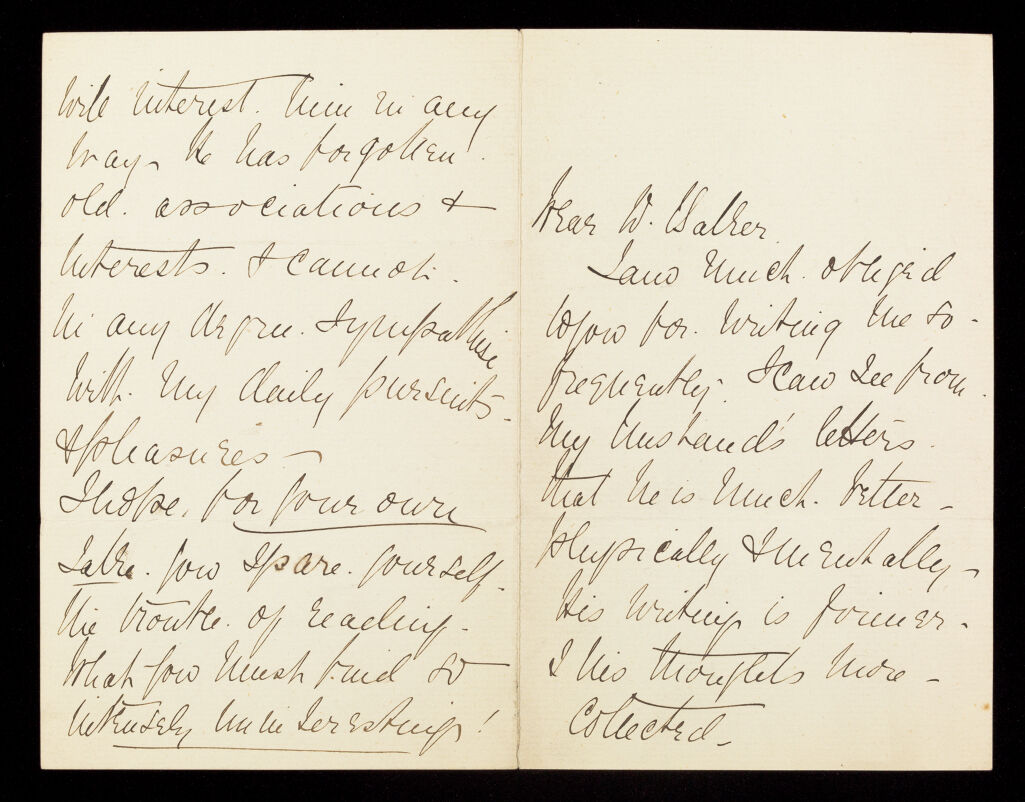 will interest. him in any
way. He has forgotten.
old. associations &
interests. & cannot.
in any degree. sympathise
with. my daily pursuits.
& pleasures –
I hope. for your own
sake. you spare. yourself.
the trouble. of reading.
what you must find so
intensely uninteresting!
Dear W. Walker.
I am much. obliged
to you for. writing me so -
frequently. I can see from.
my husband's letters.
that he is much. better -
physically & mentally -
His writing is firmer -
& his thoughts more -
collected -